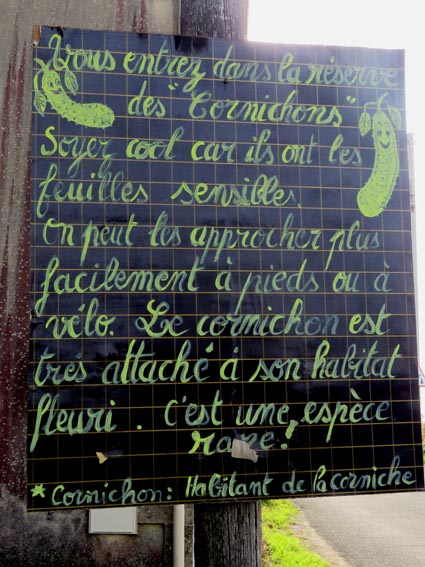 Vous entrez dans la réserve
des "Cornichons"
Soyez cool car ils ont les
feuilles sensibles.
On peut les approcher plus
facilement à pieds ou à
vélo. Le cornichon est
très attaché à son habitat
fleuri. C'est une espèce
rare!
* Cornichon: Habitant de la corniche